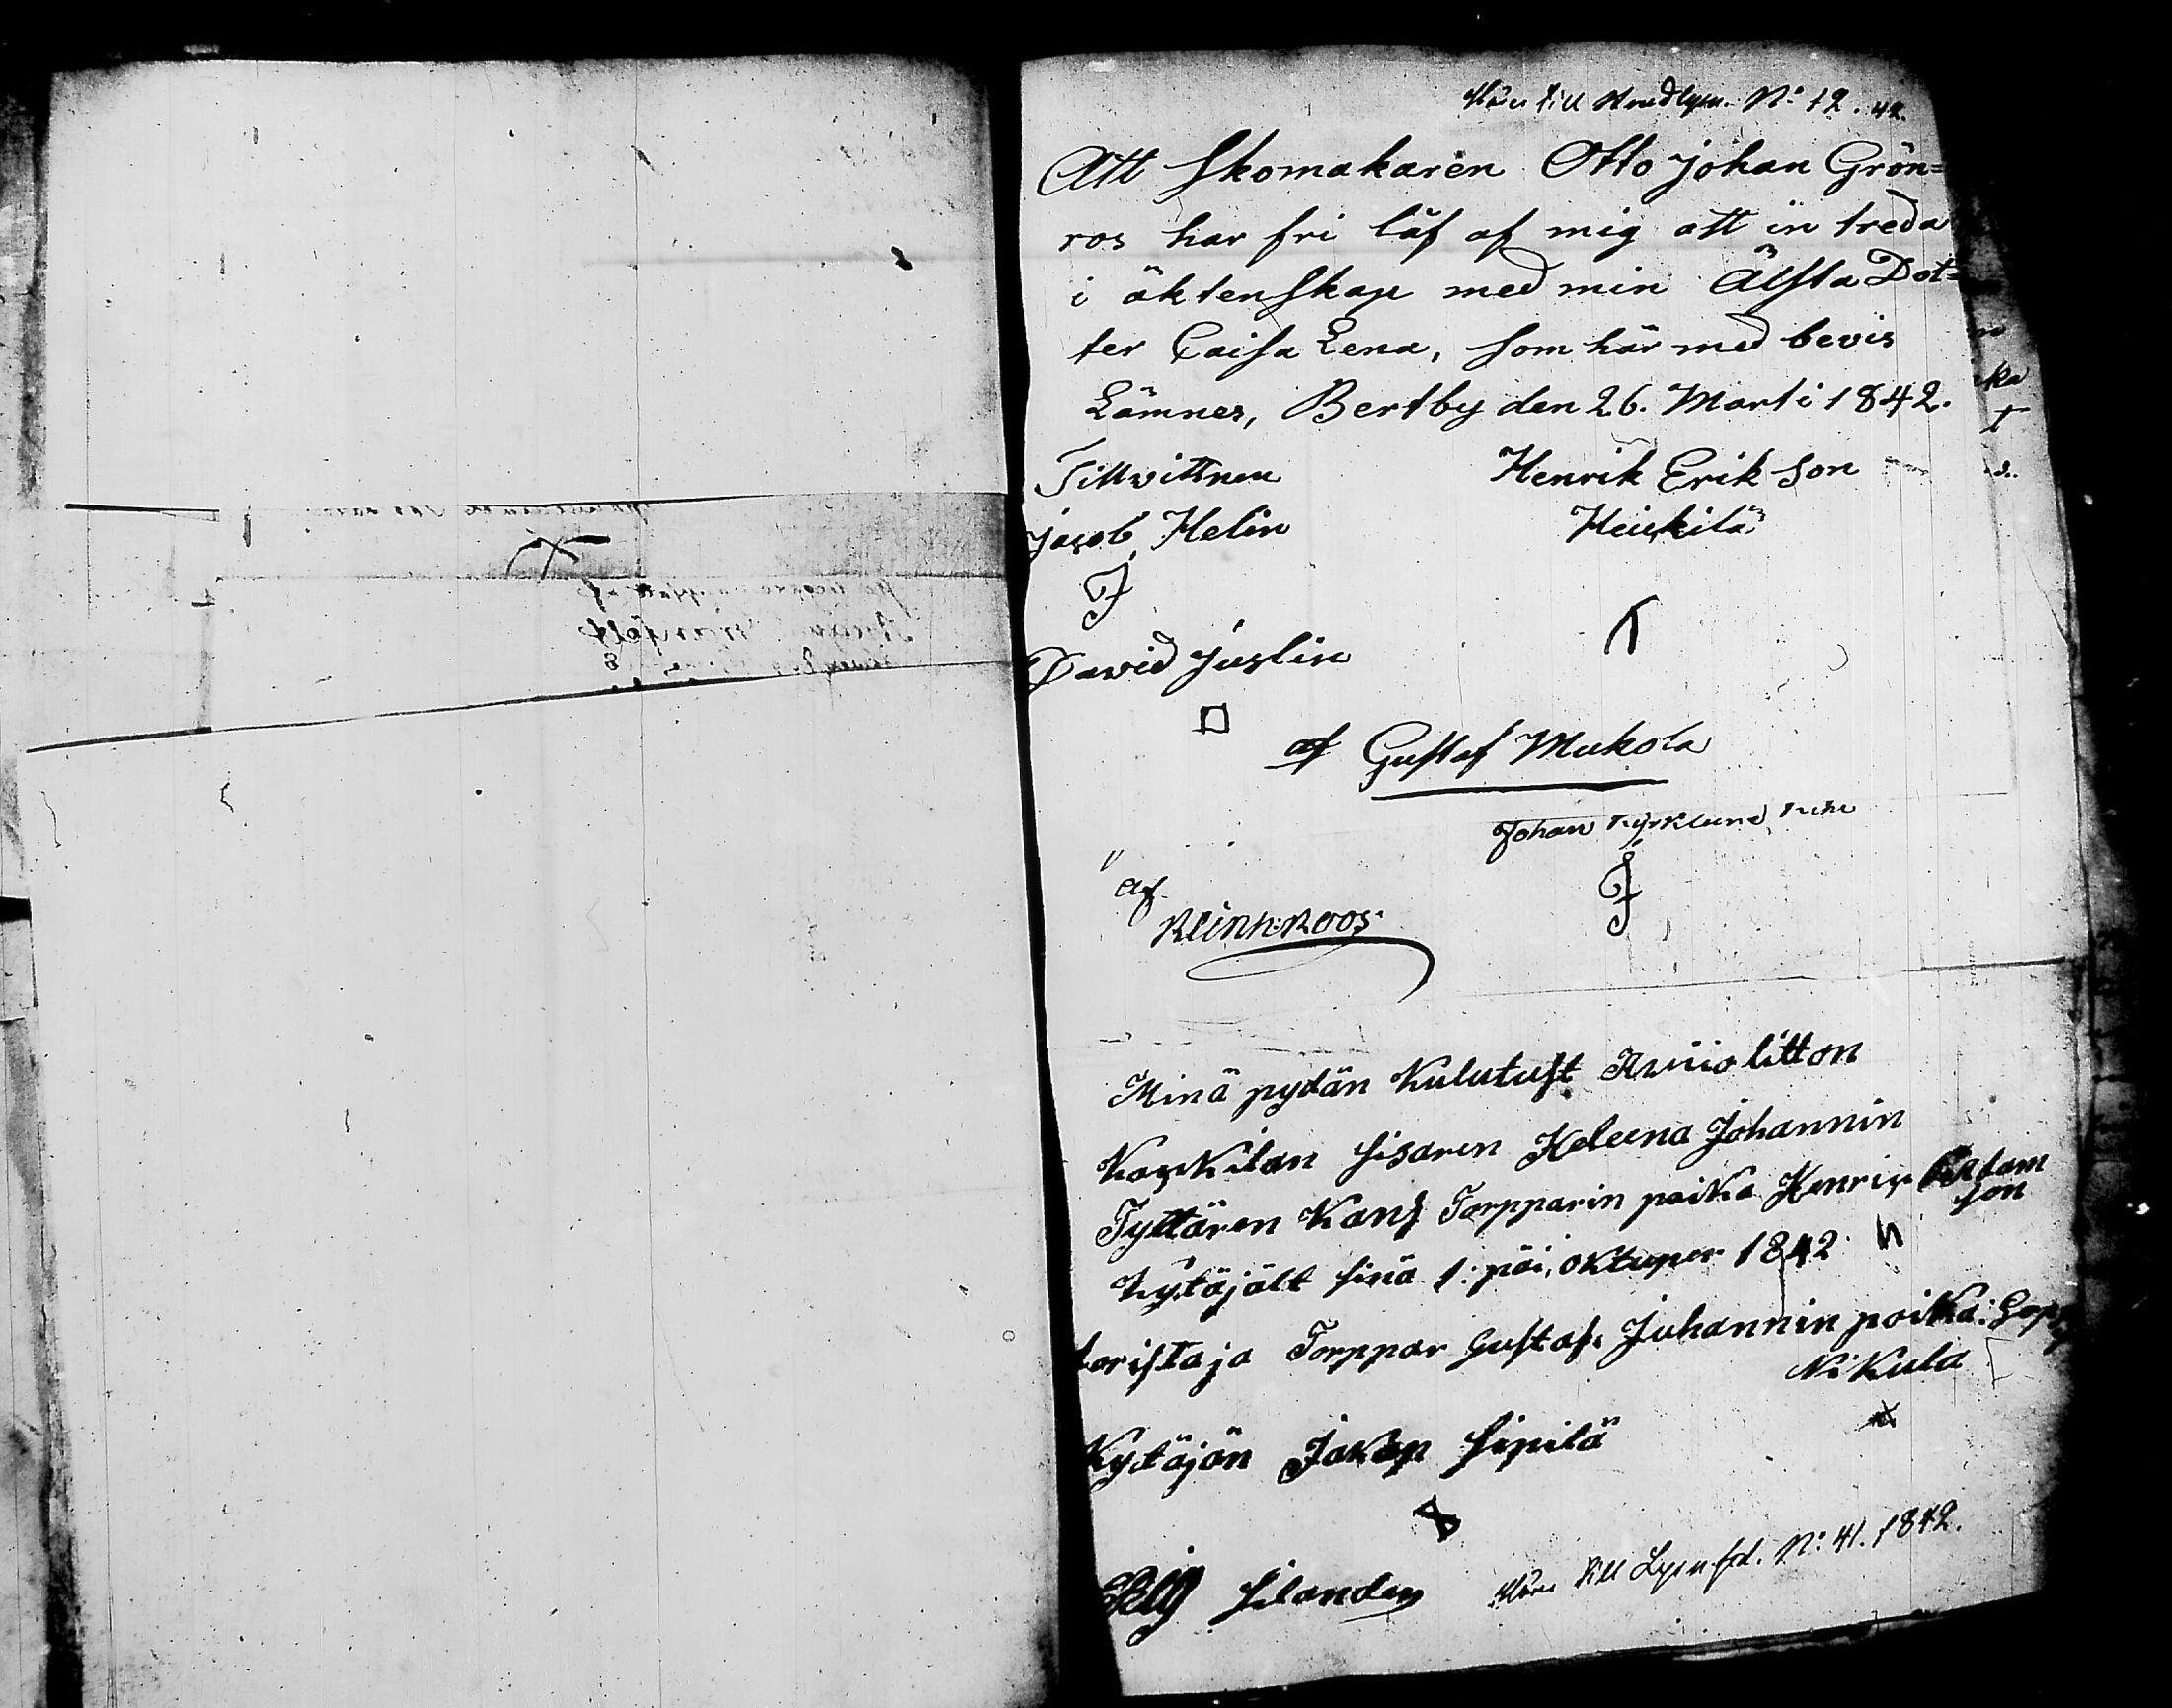 Hörer till No 12. 42.
Att Skomakaren Otto Johan Grön=
ros har fri låf af mig att in treda
i äktenskap med min Älsta Dot=
ter Caisa Lena, som här med bevis
Lämnes, Bertby den 26. Marti 1842.
Till vittnen Henrik Erik Son
Jacob Helin Heickilä
David Juslin
af Gustaf Mukola
Johan Kyrklund
af
Klinkroos
Minä pydän Kulutust Aviio litton
Kaskilan sisaren Heleena Johannin
Tyttären Kans Torpparin poika Henrik Adam
son
Kytäjält sinä 1: päi, oktuper 1842
toristaja Torppar Gustaf. Juhannin poika:
Nikula
Kytäjän Jakop Sipilä
Silander
Hörer till No: 41. 1842.